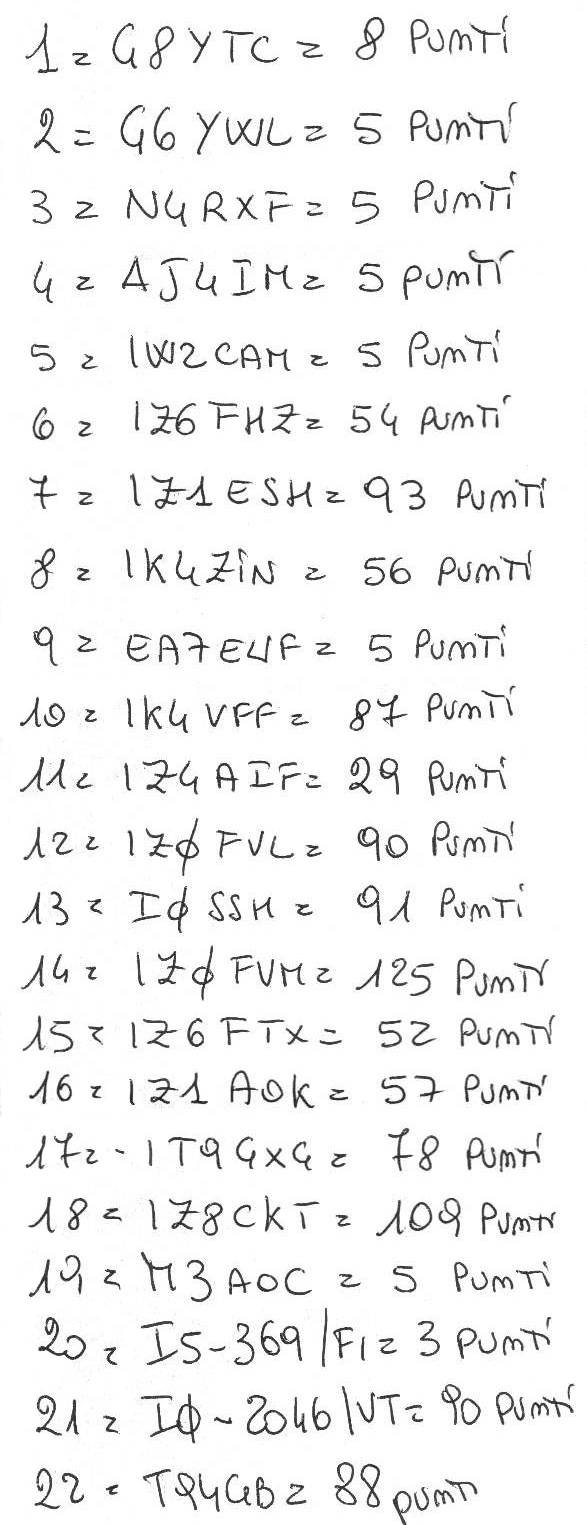 1 = G8YTC = 8 PUNTI
2 = G6YWL = 5 PUNTI
3 = N4RXF = 5 PUNTI
4 = AJ4IM = 5 PUNTI
5 = IW2CAM = 5 PUNTI
6 = IZ6FHZ = 54 PUNTI
7 = IZ1ESH = 93 PUNTI
8 = IK4ZIN = 56 PUNTI
9 = EA7EUF = 5 PUNTI
10 = IK4VFF = 87 PUNTI
11 = IZ4AIF = 29 PUNTI
12 = IZØFVL = 90 PUNTI
13 = IØSSH = 91 PUNTI
14 = IZØFVM = 125 PUNTI
15 = IZ6FTX = 52 PUNTI
16 = IZ1AOK = 57 PUNTI
17 = - IT9GXG = 78 PUNTI
18 = IZ8CKT = 109 PUNTI
19 = M3AOC = 5 PUNTI
20 = I5-369/FI = 3 PUNTI
21 = IØ-2046/VT = 90 PUNTI
22 = T94GB = 88 PUNTI